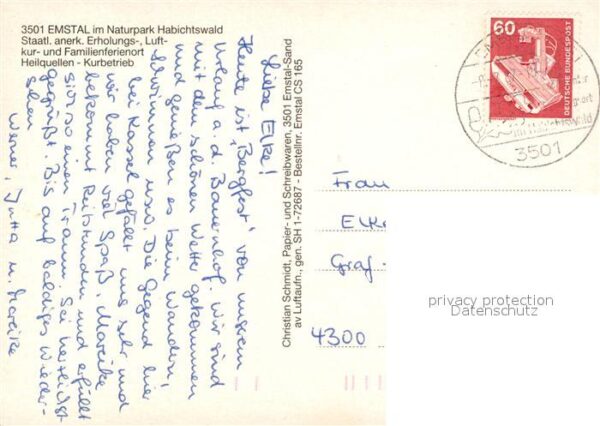 3501 EMSTAL im Naturpark Habichtswald
Staatl. anerk. Erholungs-, Luft-
kur- und Familienferienort
Heilquellen - Kurbetrieb
Liebe Elke!
Heute ist „Bergfest" von unserem
Urlaub a. d. Bauernhof. Wir sind
mit den schönen Wetter gekommen
und genießen es beim Wandern,
Schwimmen usw. Die Gegend hier
bei Kassel gefällt uns sehr und
wir haben viel Spaß. Mareike
bekommt Reitstunden und erfüllt
sich so einen Traum. Sei herzlichst
gegrüßt. Bis auf baldiges Wieder-
sehen.
Werner, Jutta u. Mareike
Christian Schmidt, Papier- und Schreibwaren, 3501 Emstal-Sand
av Luftaufn., gen. SH 1-72687 - Bestellnr. Emstal CS 165
60
DEUTSCHE BUNDESPOST
im Habichtswald
3501
Frau
Elke
Graf-
4300
privacy protection
Datenschutz